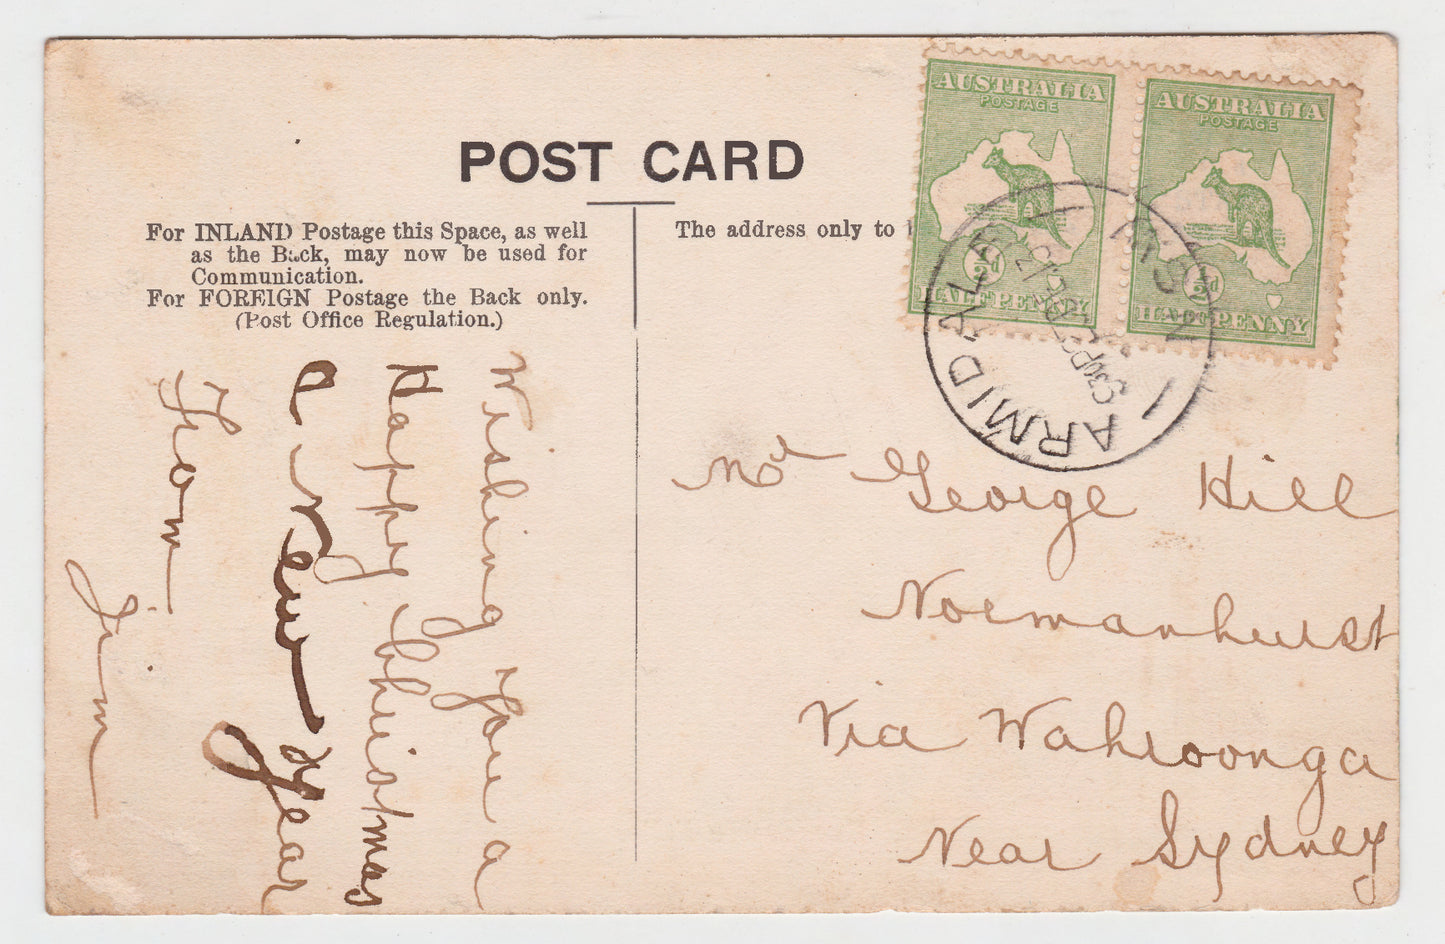 POST CARD
For INLAND Postage this Space, as well
as the Back, may now be used for
Communication.
For FOREIGN Postage the Back only.
(Post Office Regulation.)
The address only to
AUSTRALIA
POSTAGE
½d
HALFPENNY
AUSTRALIA
POSTAGE
½d
HALFPENNY
ARMIDALE
N.S.W
Wishing you a
Happy Christmas
a New Year
From
Jim
Mr George Hill
Normanhurst
Via Wahroonga
Near Sydney